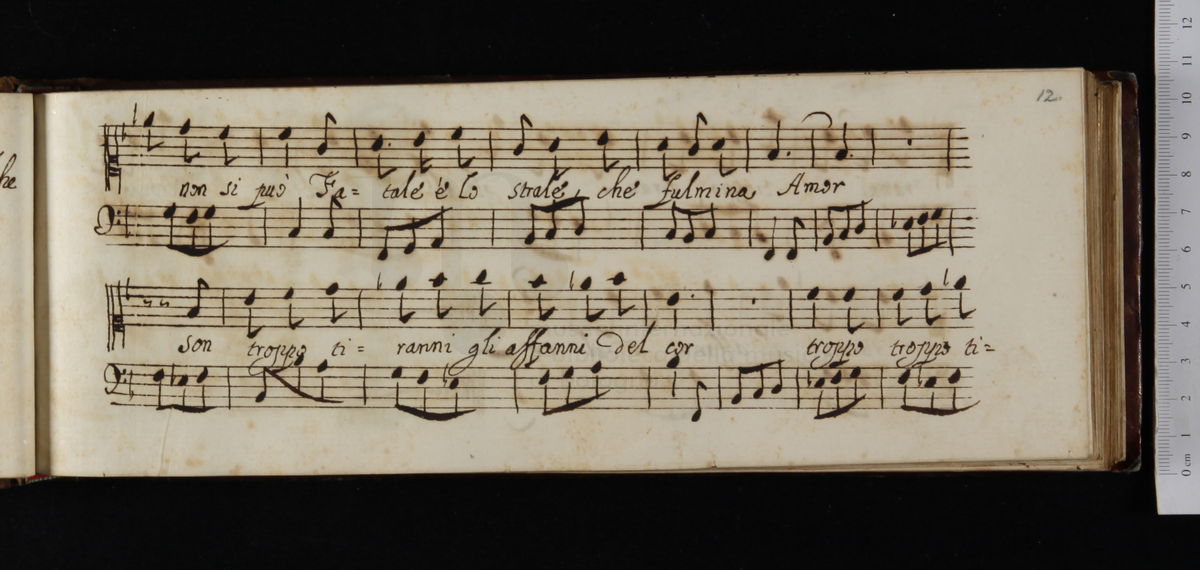 12
he
non si può Fa= tale è lo strale, che fulmina Amor
son troppo ti= ranni gli affanni del cor troppo troppo ti=
12
11
10
9
8
7
6
5
4
3
2
1
0 cm